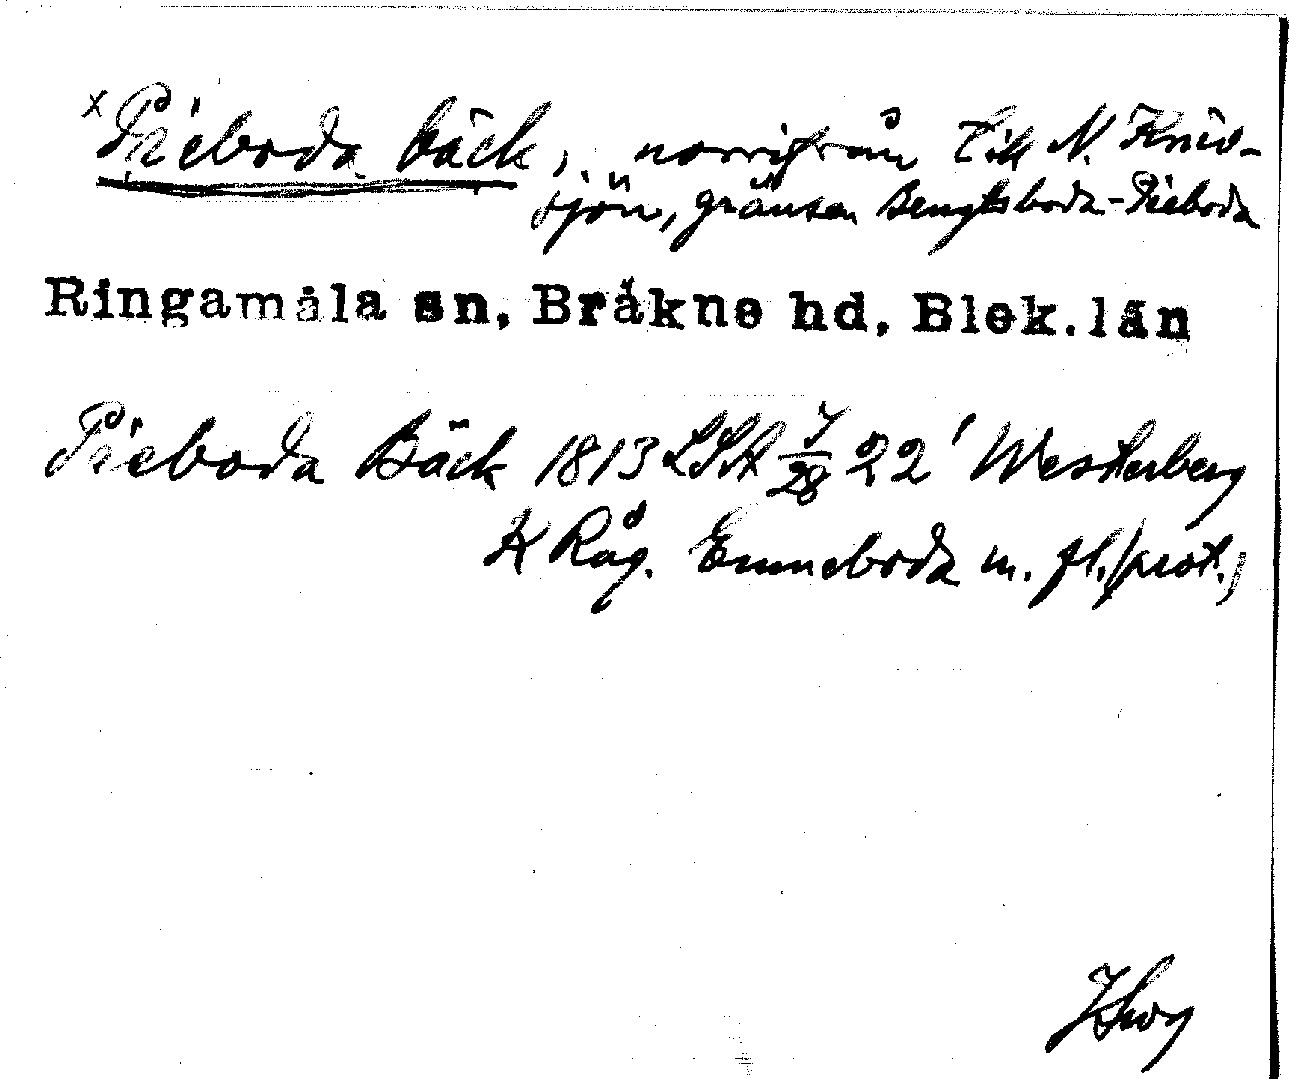 x Pieboda bäck, norrifrån till N. Kniv-
sjön, gränsen Bengtsboda-Pieboda
Ringamåla sn, Bräkne hd, Blek. län
Pieboda Bäck 1813 LSA 7/28 22' Westerberg
K Råg. Emneboda m. fl. (prot.)